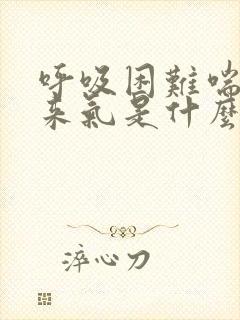 呼吸困難喘
来氣是什麼
淬心刀